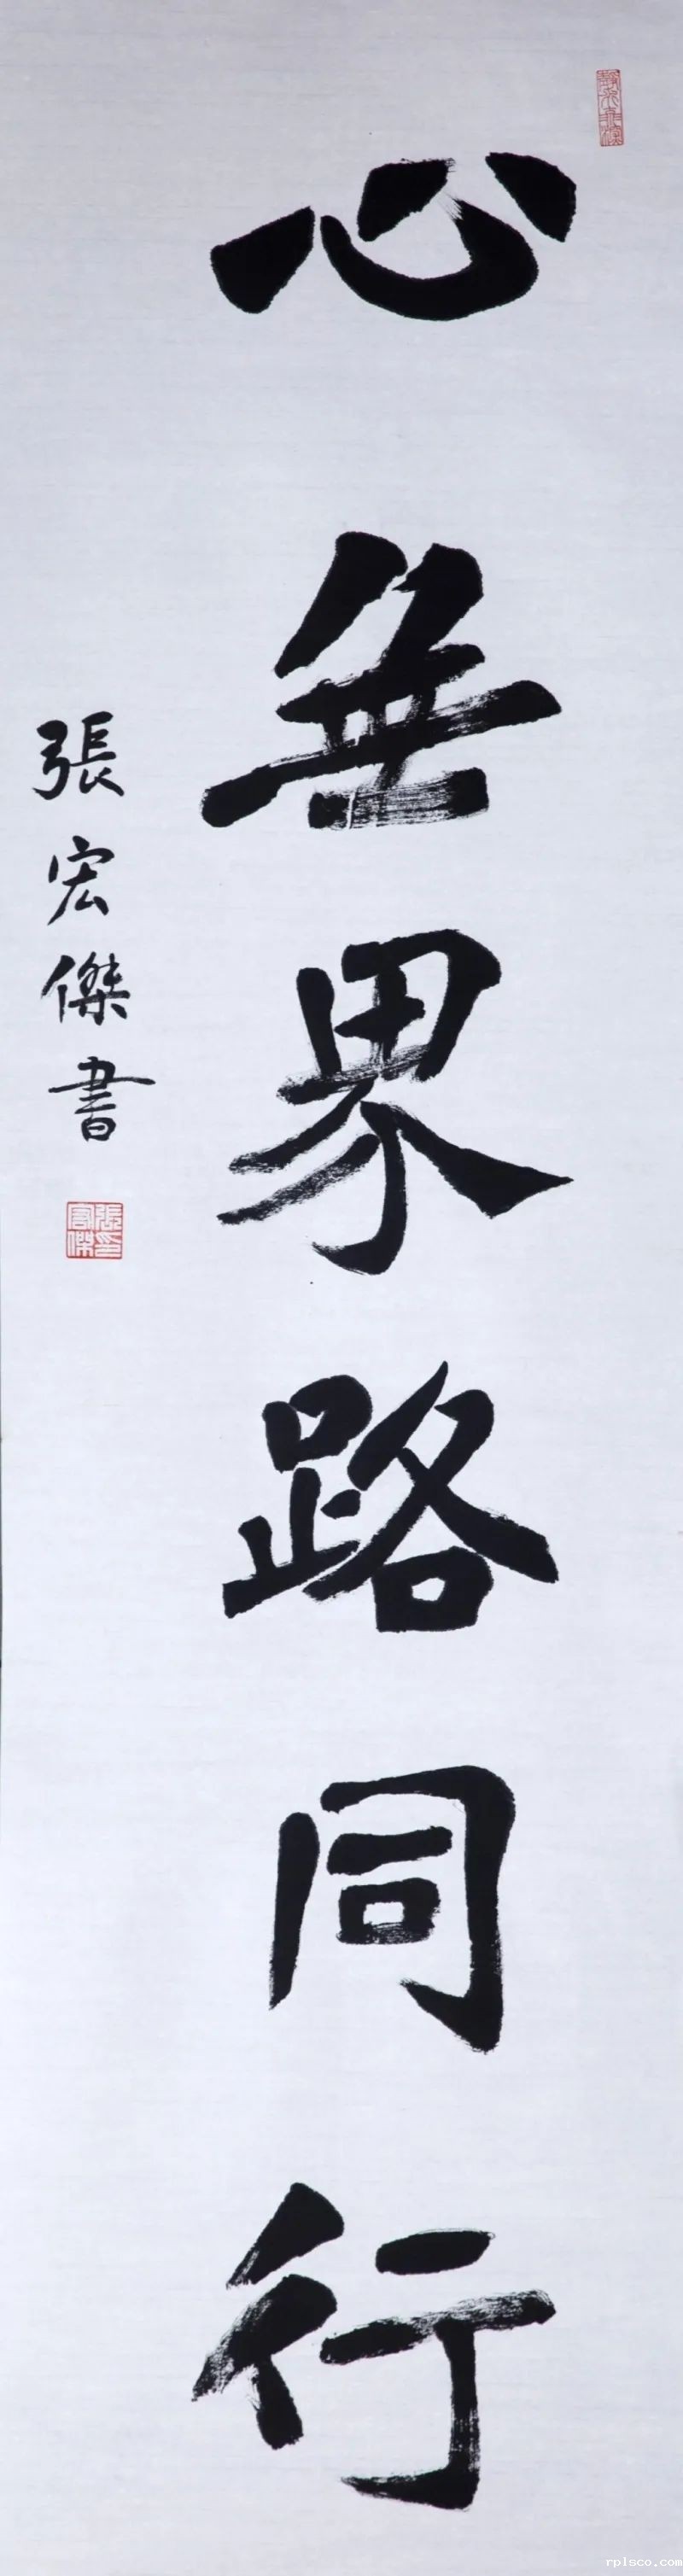 心無界路同行
張宏傑書
張宏傑印
rplsco.com